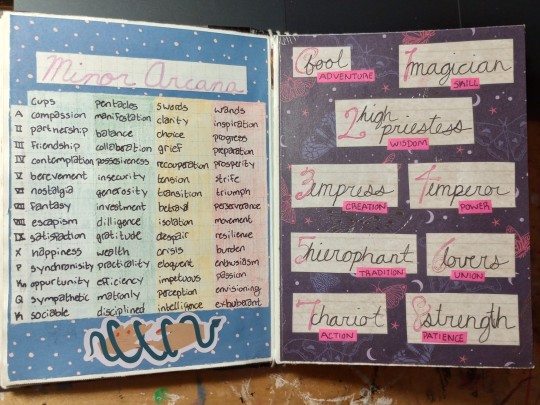 Minor Arcana
cups pentacles swords wands
A compassion manifestation clarity inspiration
II partnership balance choice progress
III friendship collaboration grief preparation
IV contemplation possesiveness recuperation prosperity
V berevement insecurity tension strife
VI nostalgia generosity transition triumph
VII fantasy investment betrayal perseverance
VIII escapism dilligence isolation movement
IX satisfaction gratitude despair resilience
X happiness wealth crisis burden
P synchronisity practicality eloquent enthusiasm
Kn oppurtunity efficiency impetuous passion
Q sympathetic matronly perception envisioning
K sociable disciplined intelligence exhuberant
0 fool
ADVENTURE
1 magician
SKILL
2 high
priestess
WISDOM
3 empress
CREATION
4 emperor
POWER
5 hierophant
TRADITION
6 lovers
UNION
7 chariot
ACTION
8 strength
PATIENCE